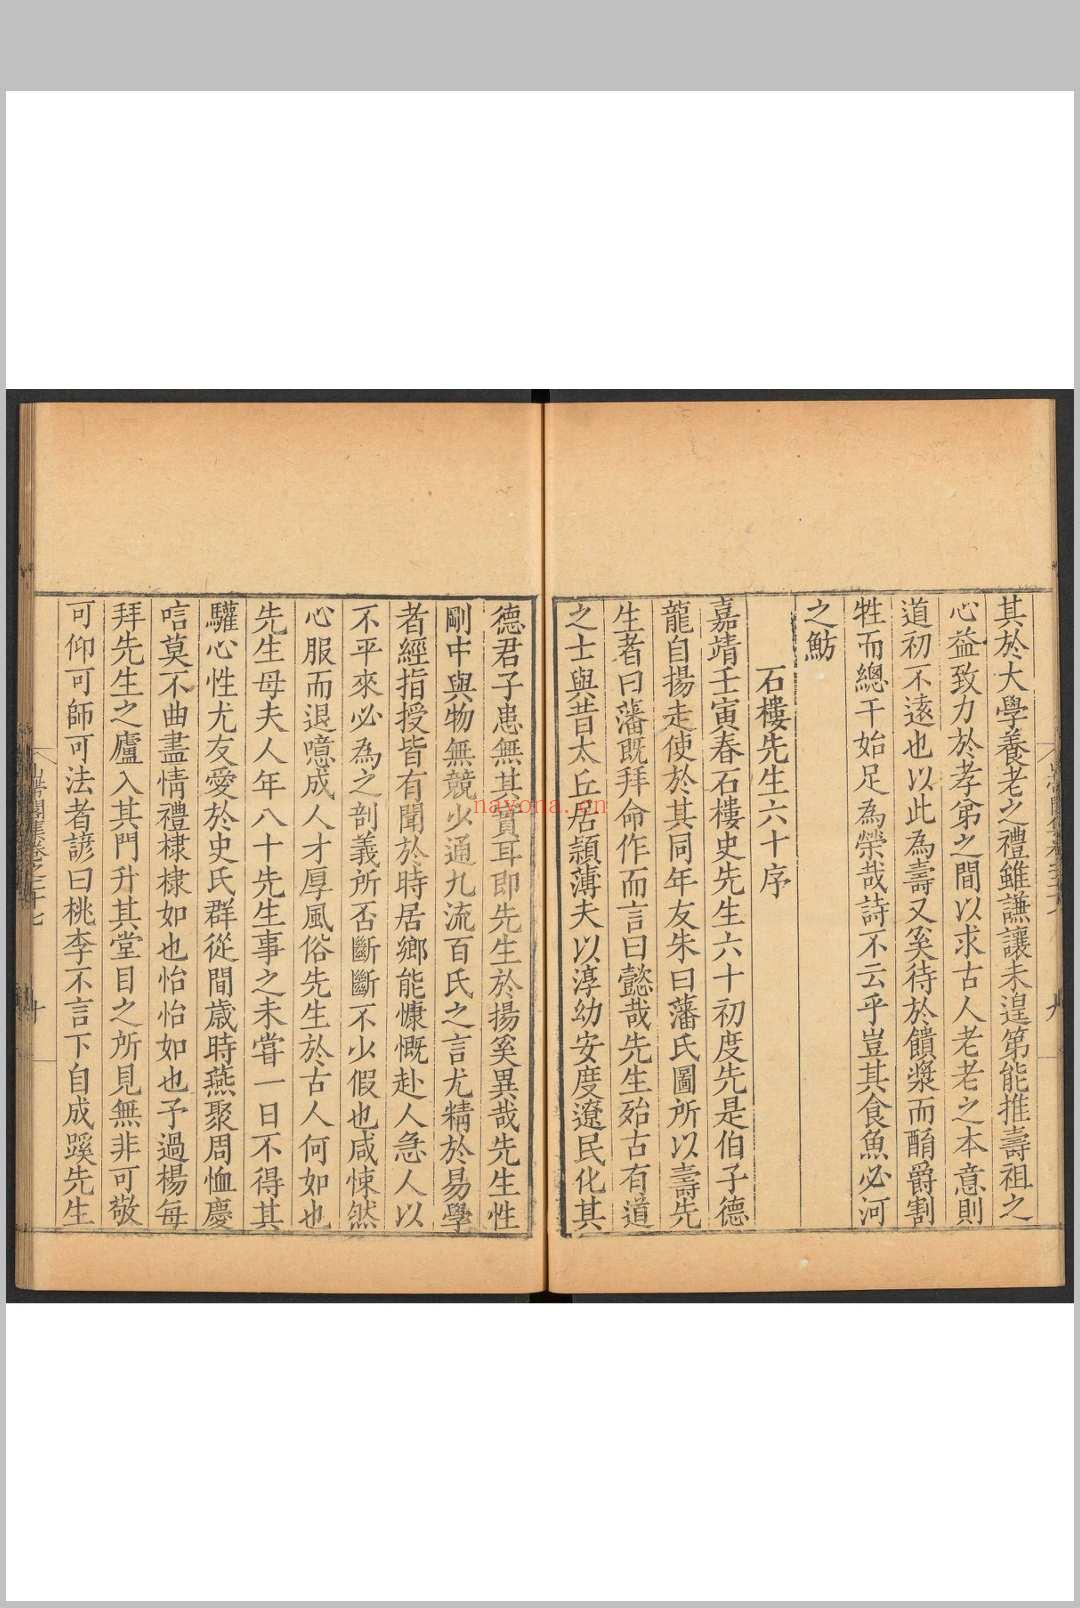 其於大學養老之禮雖謙讓未遑第能推壽祖之
心益致力於孝弟之間以求古人老老之本意則
道初不遠也以此為壽又奚待於饋漿而酳爵割
牲而總干始足為榮哉詩不云乎豈其食魚必河
之魴
石樓先生六十序
嘉靖壬寅春石樓史先生六十初度先是伯子德
龍自揚走使於其同年友朱曰藩氏圖所以壽先
生者曰藩既拜命作而言曰懿哉先生殆古有道
之士與昔太丘居潁薄夫以淳幼安度遼民化其
德君子患無其實耳即先生於揚奚異哉先生性
剛中與物無競少通九流百氏之言尤精於易學
者經指授皆有聞於時居鄉能慷慨赴人急人以
不平來必為之剖義所否斷斷不少假也咸悚然
心服而退噫成人才厚風俗先生於古人何如也
先生母夫人年八十先生事之未嘗一日不得其
驩心性尤友愛於史氏群從間歲時燕聚周恤慶
唁莫不曲盡情禮棣棣如也怡怡如也予過楊每
拜先生之廬入其門升其堂目之所見無非可敬
可仰可師可法者諺曰桃李不言下自成蹊先生
卷之三十七
十
nayona.cn